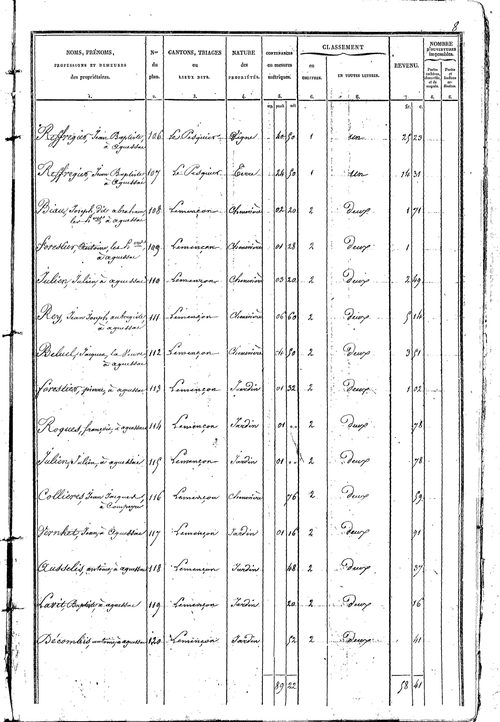 8
NOMS, PRÉNOMS,
PROFESSIONS ET DEMEURES
des propriétaires.
Nos
du
plan.
CANTONS, TRIAGES
ou
LIEUX DITS.
NATURE
des
PROPRIÉTÉS.
CONTENANCES
en mesures
métriques.
CLASSEMENT
en
CHIFFRES.
EN TOUTES LETTRES.
REVENU.
NOMBRE
D'OUVERTURES
imposables.
1. 2. 3. 4. 5. 6. 7. 8.
Reffregier, Jean Baptiste, à aguessac 106 Le Pesquier Vigne 40 50 1 un 25 23
Reffregier, Jean Baptiste, à Aguessac 107 Le Pesquier Terre 24 50 1 un 14 31
Biau, Joseph, dit abraham, les hers à aguessac 108 Lemençon Chenevière 02 20 2 Deux 1 71
forestier, Antoine, les hers à aguessac 109 Lemençon Chenevière 01 28 2 Deux 1
Julien, Julien, à aguessac 110 Lemençon Chenevière 03 20 2 Deux 2 49
Rey, Jean Joseph, aubergiste, à aguessac 111 Lemençon Chenevière 06 60 2 Deux 5 14
Beluel, Jacques, la Veuve, à aguessac 112 Lemençon Chenevière 50 2 Deux 3 51
forestier, pierre, à aguessac 113 Lemençon Jardin 01 32 2 Deux 1 02
Roques, françois, à aguessac 114 Lemençon Jardin 01 .. 2 Deux 78
Julien, Julien, à aguessac 115 Lemençon Jardin 01 .. 2 Deux 78
Collières, Jean Jacques, à Compeyre 116 Lemençon Chenevière 76 2 Deux 59
Vernhet, Jean, à Aguessac 117 Lemençon Jardin 01 16 2 Deux 91
antoine, à aguessac 118 Lemençon Jardin 48 2 Deux 37
Lavit Baptiste, à aguessac 119 Lemençon Jardin 20 2 Deux 16
Décombis, antoine, à aguessac 120 Lemençon Jardin 52 2 Deux 41
89 22 58 41